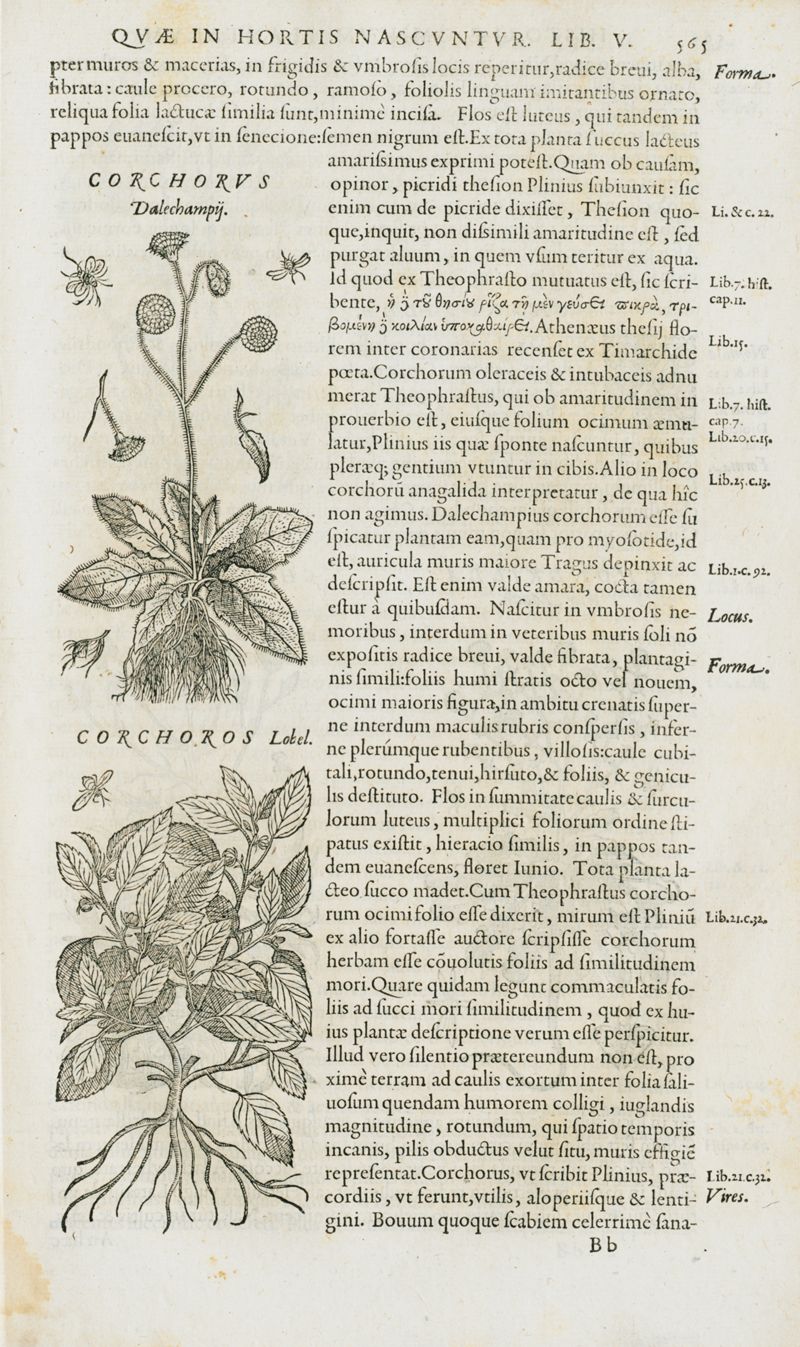 QVÆ IN HORTIS NASCVNTVR. LIB. V. 565
pter muros & macerias, in frigidis & vmbrosis locis reperitur,radice breui, alba,
Forma.
fibrata: caule procero, rotundo, ramoso, foliolis linguam imitantibus ornato,
reliqua folia lactucæ similia sunt,minimè incisa. Flos est luteus, qui tandem in
pappos euanescit,vt in senecione:semen nigrum est.Ex tota planta succus lacteus
amarissimus exprimi potest.Quam ob causam,
CORCHORVS
Dalechampij.
opinor, picridi thesion Plinius subiunxit: sic
enim cum de picride dixisset, Thesion quo-
Li. & c. 22.
que,inquit, non dissimili amaritudine est, sed
purgat aluum, in quem vsum teritur ex aqua.
Id quod ex Theophrasto mutuatus est, sic scri-
Lib.7. hist.
cap.11.
bente, ἡ ϳ τῦ θησίυ ῥίζα τῇ μὲν γεύσϵι πικρὰ, τρι-
βομένη ϳ κοιλίαν ὑποχαθαίρϵι.Athenæus thesij flo-
rem inter coronarias recenset ex Timarchide
Lib.15.
poeta.Corchorum oleraceis & intubaceis adnu
merat Theophrastus, qui ob amaritudinem in
Lib.7. hist.
cap.7.
prouerbio est, eiusque folium ocimum æmu-
latur,Plinius iis quæ sponte nascuntur, quibus
Lib.20.c.15.
pleræq; gentium vtuntur in cibis.Alio in loco
Lib.25.c.13.
corchorū anagalida interpretatur, de qua hîc
non agimus. Dalechampius corchorum esse su
spicatur plantam eam,quam pro myosotide,id
est, auricula muris maiore Tragus depinxit ac
Lib.1.c.92.
descripsit. Est enim valde amara, cocta tamen
estur à quibusdam. Nascitur in vmbrosis ne-
Locus.
moribus, interdum in veteribus muris soli nō
expositis radice breui, valde fibrata, plantagi-
Forma.
nis simili:foliis humi stratis octo vel nouem,
ocimi maioris figura,in ambitu crenatis super-
ne interdum maculis rubris conspersis, infer-
CORCHOROS Lobel.
ne plerúmque rubentibus, villosis:caule cubi-
tali,rotundo,tenui,hirsuto,& foliis, & genicu-
lis destituto. Flos in summitate caulis & surcu-
lorum luteus, multiplici foliorum ordine sti-
patus existit, hieracio similis, in pappos tan-
dem euanescens, floret Iunio. Tota planta la-
cteo succo madet.Cum Theophrastus corcho-
rum ocimi folio esse dixerit, mirum est Pliniū
Lib.21.c.32.
ex alio fortasse auctore scripsisse corchorum
herbam esse cōuolutis foliis ad similitudinem
mori.Quare quidam legunt commaculatis fo-
liis ad succi mori similitudinem, quod ex hu-
ius plantæ descriptione verum esse perspicitur.
Illud vero silentio prætereundum non est, pro
ximè terram ad caulis exortum inter folia sali-
uosum quendam humorem colligi, iuglandis
magnitudine, rotundum, qui spatio temporis
incanis, pilis obductus velut situ, muris effigiē
repræsentat.Corchorus, vt scribit Plinius, præ-
Lib.21.c.32.
cordiis, vt ferunt,vtilis, aloperiisque & lenti-
Vires.
gini. Bouum quoque scabiem celerrimè sana-
Bb